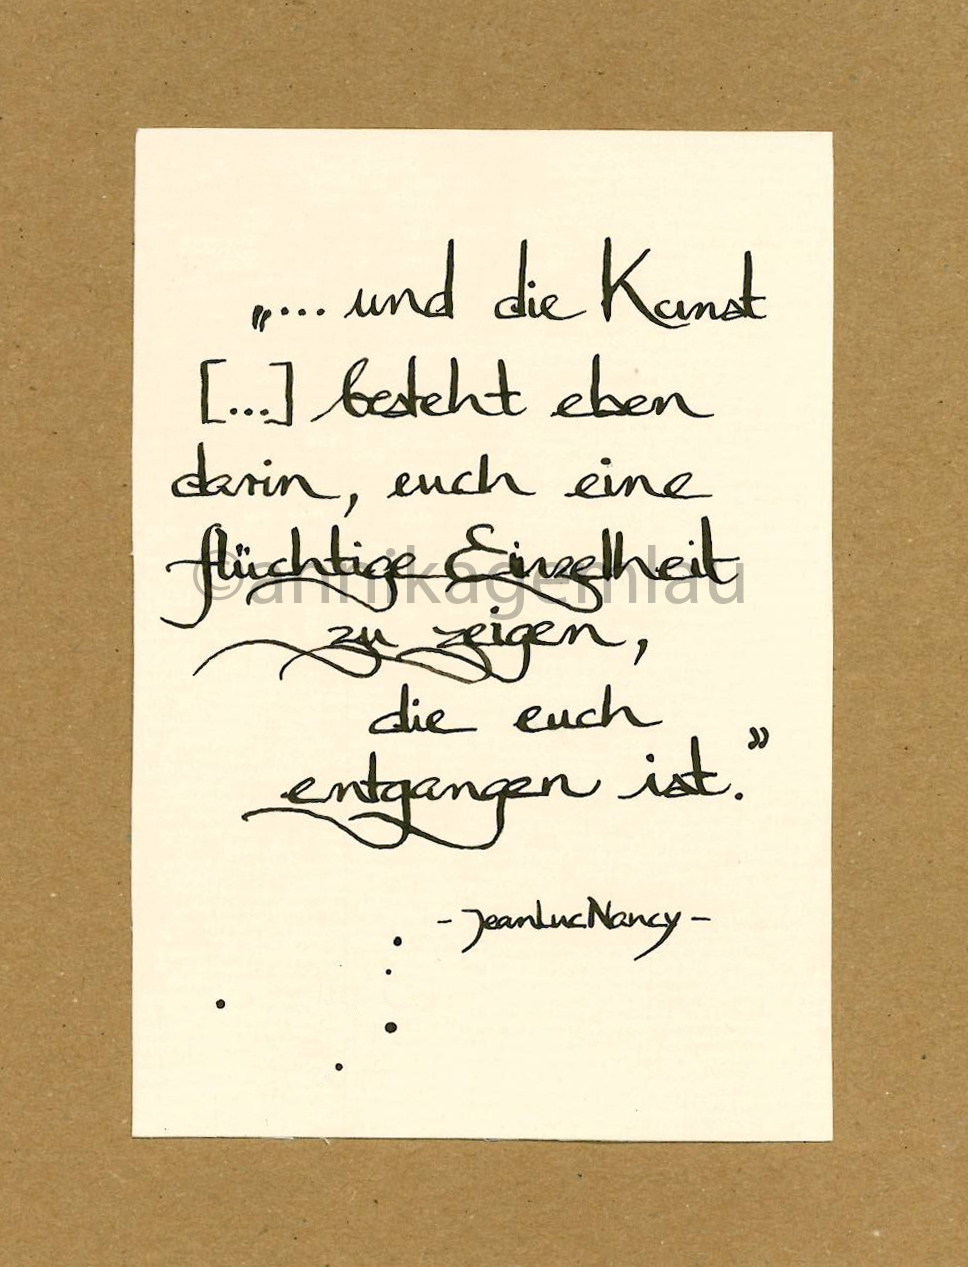 „... und die Kunst
[...] besteht eben
darin, euch eine
flüchtige Einzelheit
©annikagemlau
zu zeigen,
die euch
entgangen ist.”
- Jean Luc Nancy -